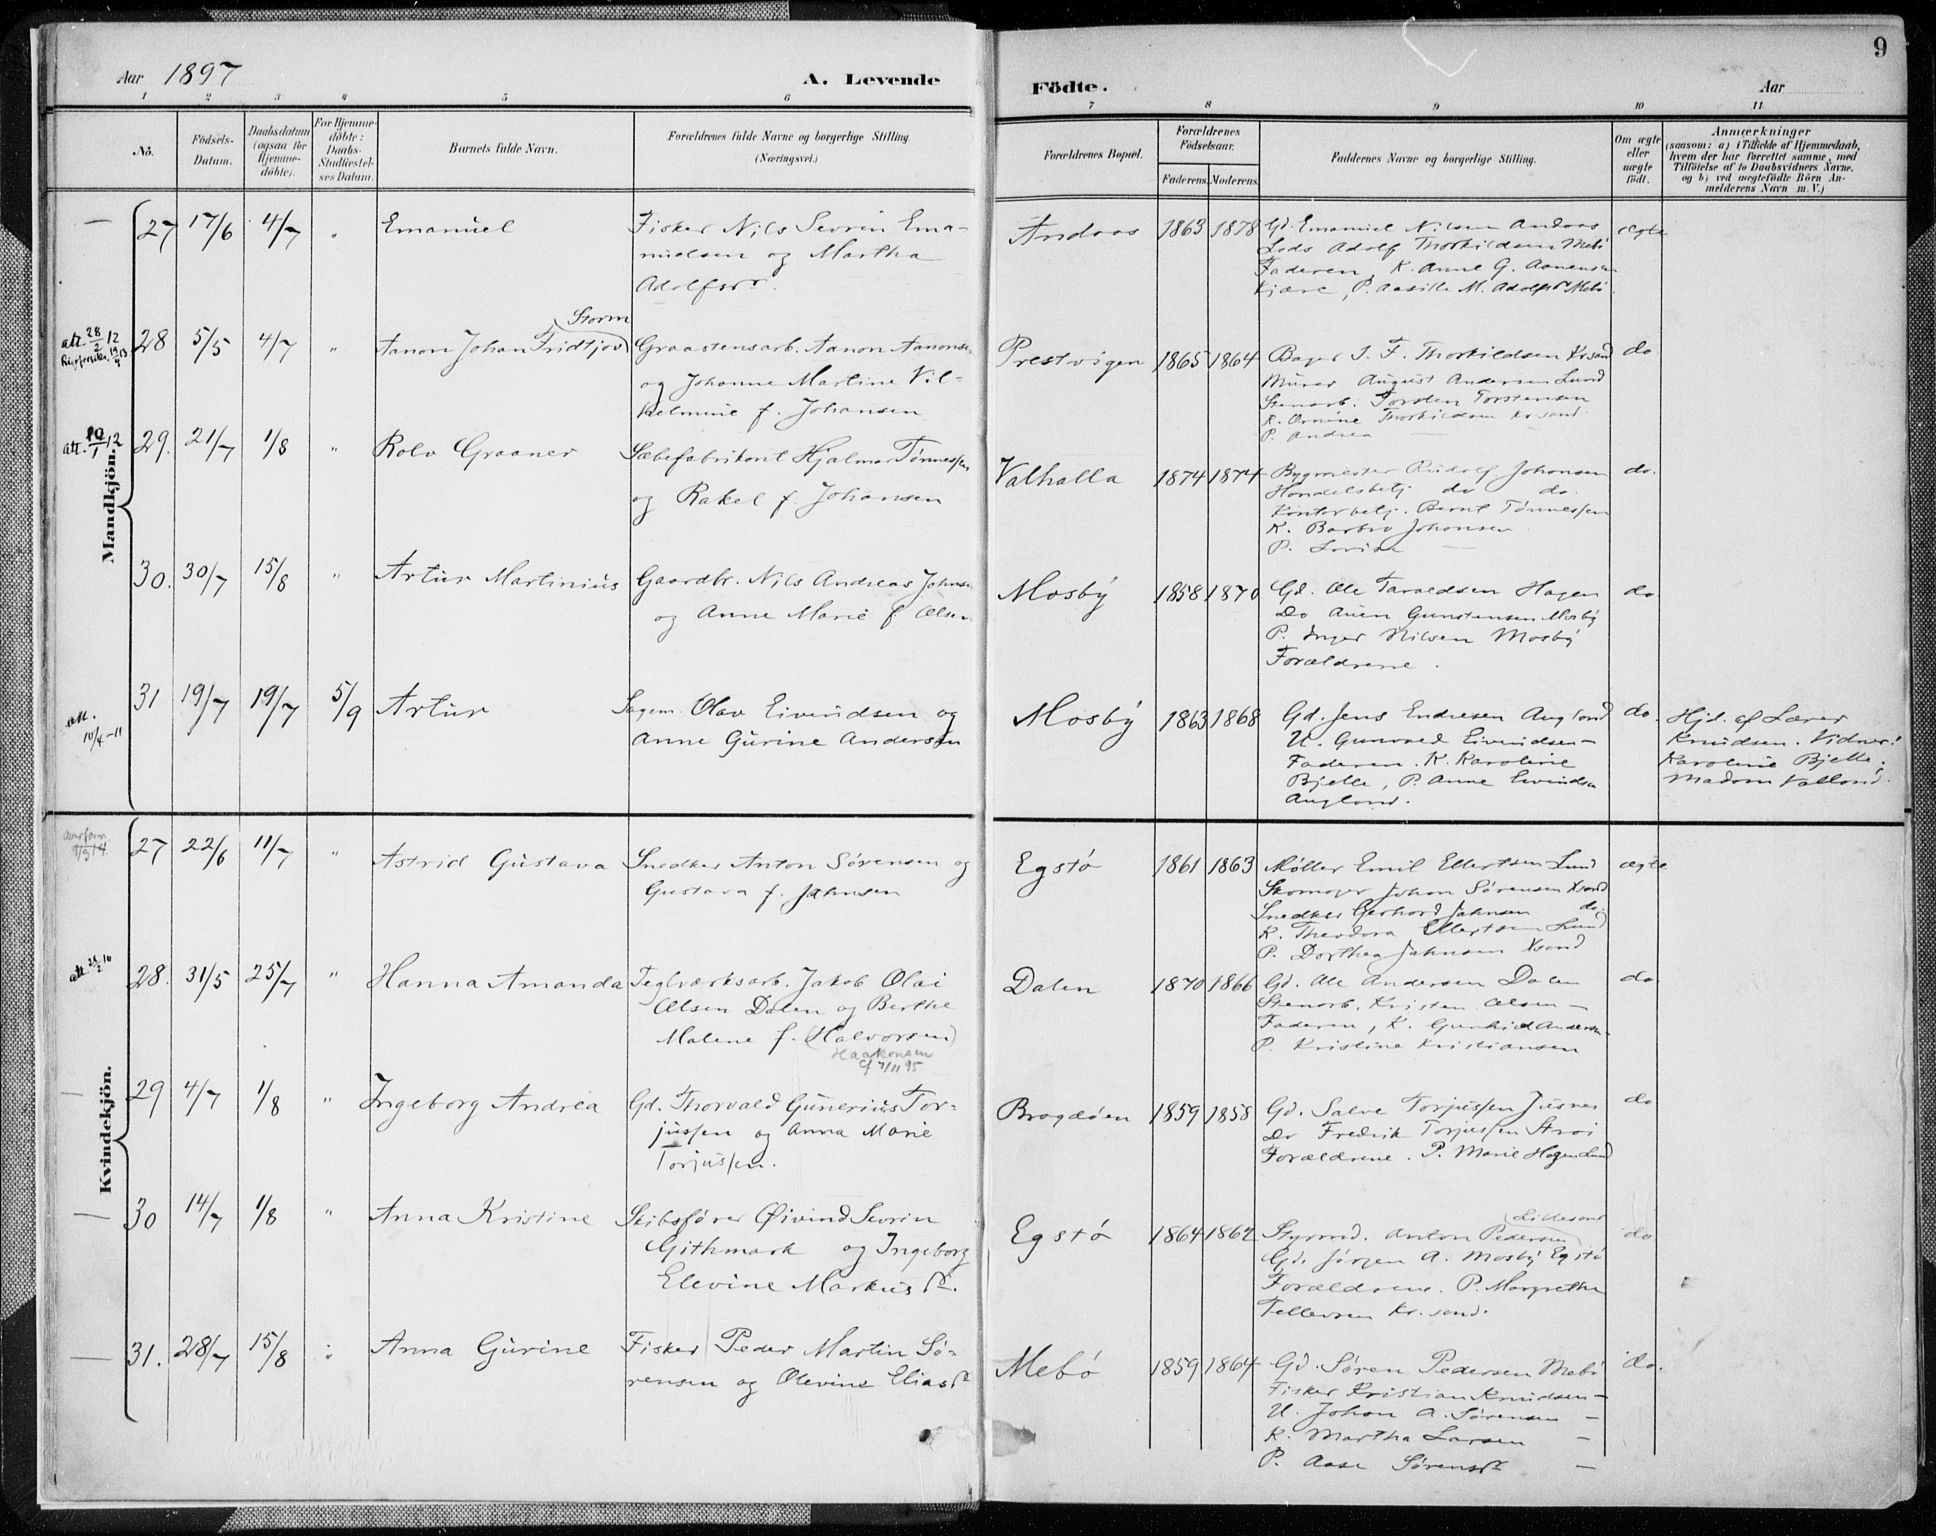 Aar 1897
A. Levende
1 2 3 4 5 6
No.
Födsels-Datum.
Daabsdatum (ogsaa for Hjemme-döbte).
For Hjemme-döbte: Daabs-Stadfæstel-ses Datum.
Barnets fulde Navn.
Forældrenes fulde Navne og borgerlige Stilling.
(Næringsvei.)
Mandkjön.
27 17/6 4/7 " Emanuel Fisker Nils Severin Ema-
nuelsen og Martha
Adolfsdr.
Storm
att. 28/2 12 28 5/5 4/7 " Aanon Johan Fridtjov Graastensarb. Aanon Aanons
og Johanne Martine Vil-
helmine f. Johansen
att. 12 29. 21/7 1/8 " Rolv Graaner Sæbefabrikant Hjalmar Tønnessen
og Rakel f. Johansen
30. 30/7 15/8 " Artur Martinius Gaardbr. Nils Andreas Johns
og Anne Marie f Olsen
att. 10/4-11 31 19/7 19/7 5/9 Artur Sagem. Olav Eivindsen og
Anne Gurine Andersen
Kvindekjön.
27 22/6 11/7 " Astrid Gustava Snedker Anton Sørensen og
Gustava f. Jahnsen
att 28. 31/5 25/7 " Hanna Amanda Teglværksarb. Jakob Olai
Olsen Dalen og Berthe
Malene f. (Halvorsen)
Haakonsen
cf 7/11 95
29 4/7 1/8 " Ingeborg Andrea Gd. Thorvald Gunerius Tor-
jussen og Anna Marie
Torjussen.
30 14/7 1/8 " Anna Kristine Skibsfører Øivind Severin
Githmark og Ingeborg
Elevine Markusdr.
31. 28/7 15/8 " Anna Gurine Fisker Peder Martin Sø-
rensen og Olevine Eliasdr
9
Födte.
Aar
7 8 9 10 11
Forældrenes Bopæl.
Forældrenes Födselsaar.
Faderens. Moderens.
Faddernes Navne og borgerlige Stilling.
Om ægte eller uægte födt.
Anmærkninger
(saasom: a) i Tilfælde af Hjemmedaab,
hvem der har forrettet samme, med
Tilföielse af to Daabsvidners Navne,
og b) ved uægtefödte Börn An-
melderens Navn m. V.)
Andaas 1863 1878 Gd. Emanuel Nilsen Andaas ægte
Lods Adolf Thorkildsen Mebø
Faderen, K. Anne G. Aanensen
Kjære, P. Aasille M. Adolfsdr Mebø
Prestvigen 1865 1864 Bager J. F. Thorkildsen Krsand do
Murer August Andersen Lund
Stenarb. Torsten Torstensen
K. Thorkildsen Kr.sand.
P. Andrea —
Valhalla 1874 1874 Bygmester Rudolf Johansen do.
Handelsbetj do do.
Kontorbetj. Bernt Tønnessen
K. Barbro Johansen
P. Lovise —
Mosby 1858 1870 Gd. Ole Taraldsen Hagen do
Do Auen Gunstensen Mosby
P. Inger Nilsen Mosby
Forældrene.
Mosby 1863 1868 Gd. Jens Endresen Augland do. Hjd. af Lærer
U. Gunvald Eivindsen — Knudsen. Vidner:
Faderen. K. Karoline Karoline Bjelle,
Bjelle, P. Anne Eivindsen Madam Valland.
Augland.
Egstø 1861 1863 Møller Emil Ellertsen Lund ægte
Skomager Johan Sørensen Krsand
Snedker Gerhard Jahnsen do.
K. Theodora Ellertsen Lund
P. Dorthea Jahnsen Krsand
Dalen 1870 1866 Gd. Ole Andersen Dalen do
Stenarb. Kristen Olsen —
Faderen, K. Gunhild Andersen —
P. Kristine Kristiansen
Bragdøen 1859 1858 Gd. Salve Torjussen Justnes do
Do Fredrik Torjussen Strai
Forældrene. P. Marie Hagen Lund
Lillesand
Egstø 1864 1862 Styrmd. Anton Pedersen do
Gd. Jørgen A. Mosby Egstø
Forældrene. P. Margrethe
Tellersen Kr.sand.
Mebø 1859 1864 Gd. Søren Pedersen Mebø do.
Fisker Kristian Knudsen —
U. Johan A. Sørensen —
K. Martha Larsen —
P. Aase Sørensdr —